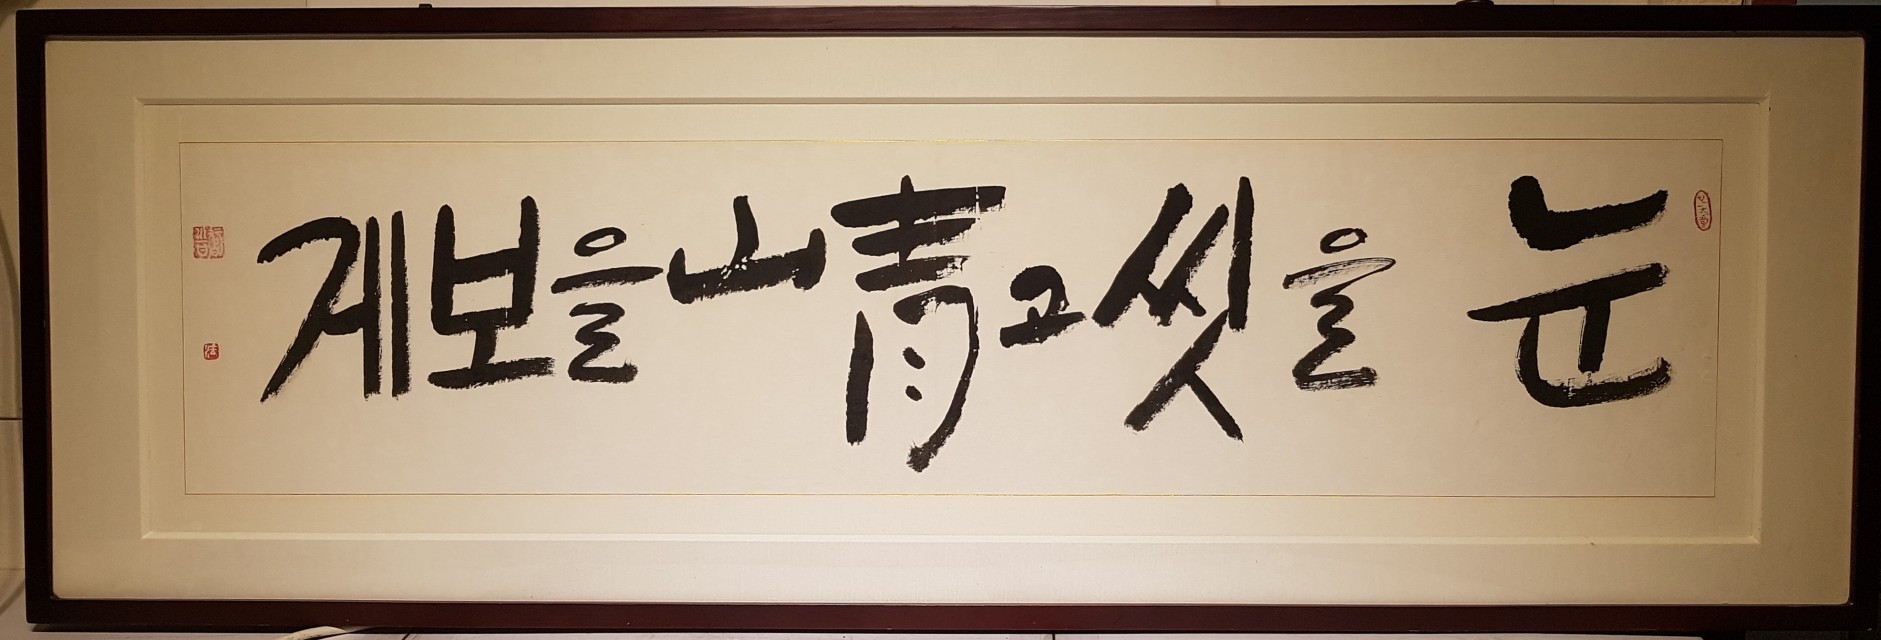 눈을 씻고 靑山을 보게